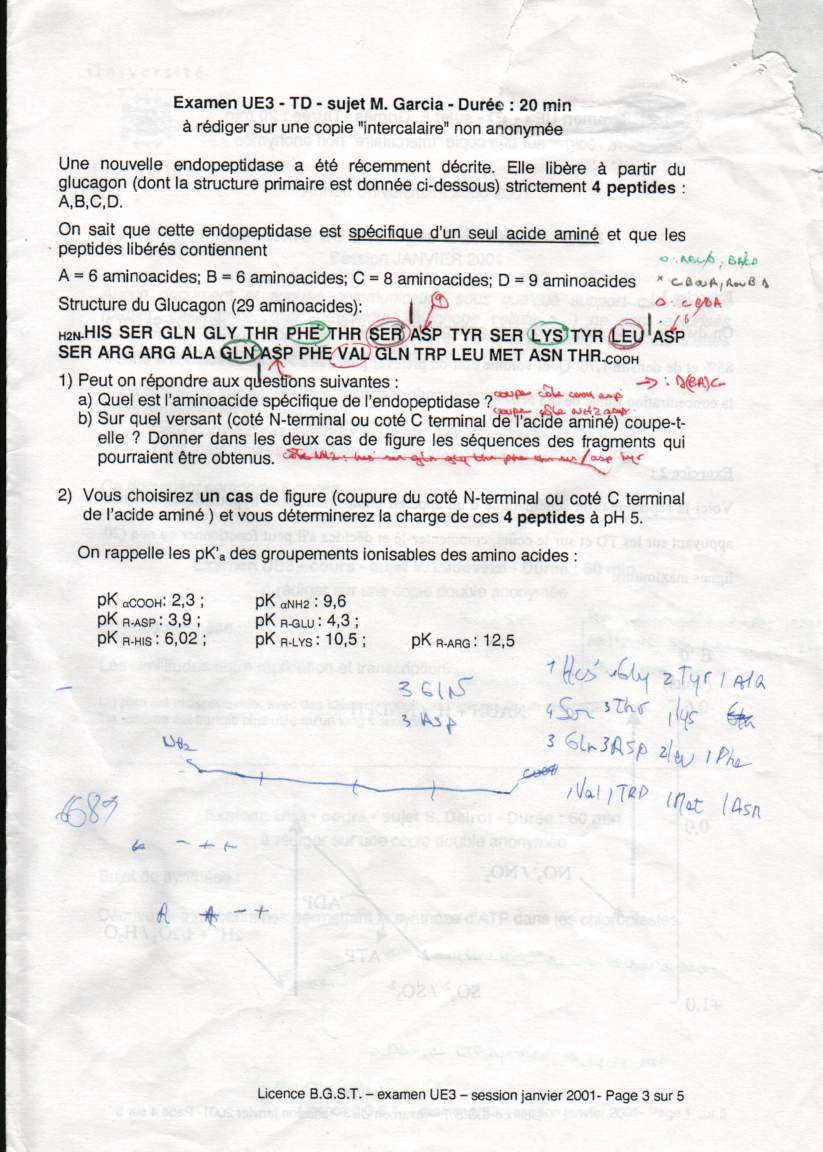 Examen UE3 - TD - sujet M. Garcia - Durée : 20 min
à rédiger sur une copie "intercalaire" non anonymée
Une nouvelle endopeptidase a été récemment décrite. Elle libère à partir du
glucagon (dont la structure primaire est donnée ci-dessous) strictement 4 peptides :
A,B,C,D.
On sait que cette endopeptidase est spécifique d'un seul acide aminé et que les
peptides libérés contiennent
A = 6 aminoacides; B = 6 aminoacides; C = 8 aminoacides; D = 9 aminoacides
Structure du Glucagon (29 aminoacides):
H2N-HIS SER GLN GLY THR PHE THR SER ASP TYR SER LYS TYR LEU ASP
SER ARG ARG ALA GLN ASP PHE VAL GLN TRP LEU MET ASN THR-COOH
1) Peut on répondre aux questions suivantes :
a) Quel est l'aminoacide spécifique de l'endopeptidase ? coupe côté COOH asp
coupe côté NH2 asp
b) Sur quel versant (coté N-terminal ou coté C terminal de l'acide aminé) coupe-t-
elle ? Donner dans les deux cas de figure les séquences des fragments qui
pourraient être obtenus.
2) Vous choisirez un cas de figure (coupure du coté N-terminal ou coté C terminal
de l'acide aminé ) et vous déterminerez la charge de ces 4 peptides à pH 5.
On rappelle les pK'a des groupements ionisables des amino acides :
pK αCOOH: 2,3 ; pK αNH2 : 9,6
pK R-ASP : 3,9 ; pK R-GLU : 4,3 ;
pK R-HIS : 6,02 ; pK R-LYS : 10,5 ; pK R-ARG : 12,5
1 His 1Gly 2 Tyr 1 Ala
3 Gln
4 Ser 3 Thr 1 Lys
3 Asp
3 Gln 3 Asp 2 leu 1 Phe
NH2
COOH
1 Val 1 TRP 1 Met 1 Asn
6689
- + +
- +
Licence B.G.S.T. – examen UE3 – session janvier 2001- Page 3 sur 5